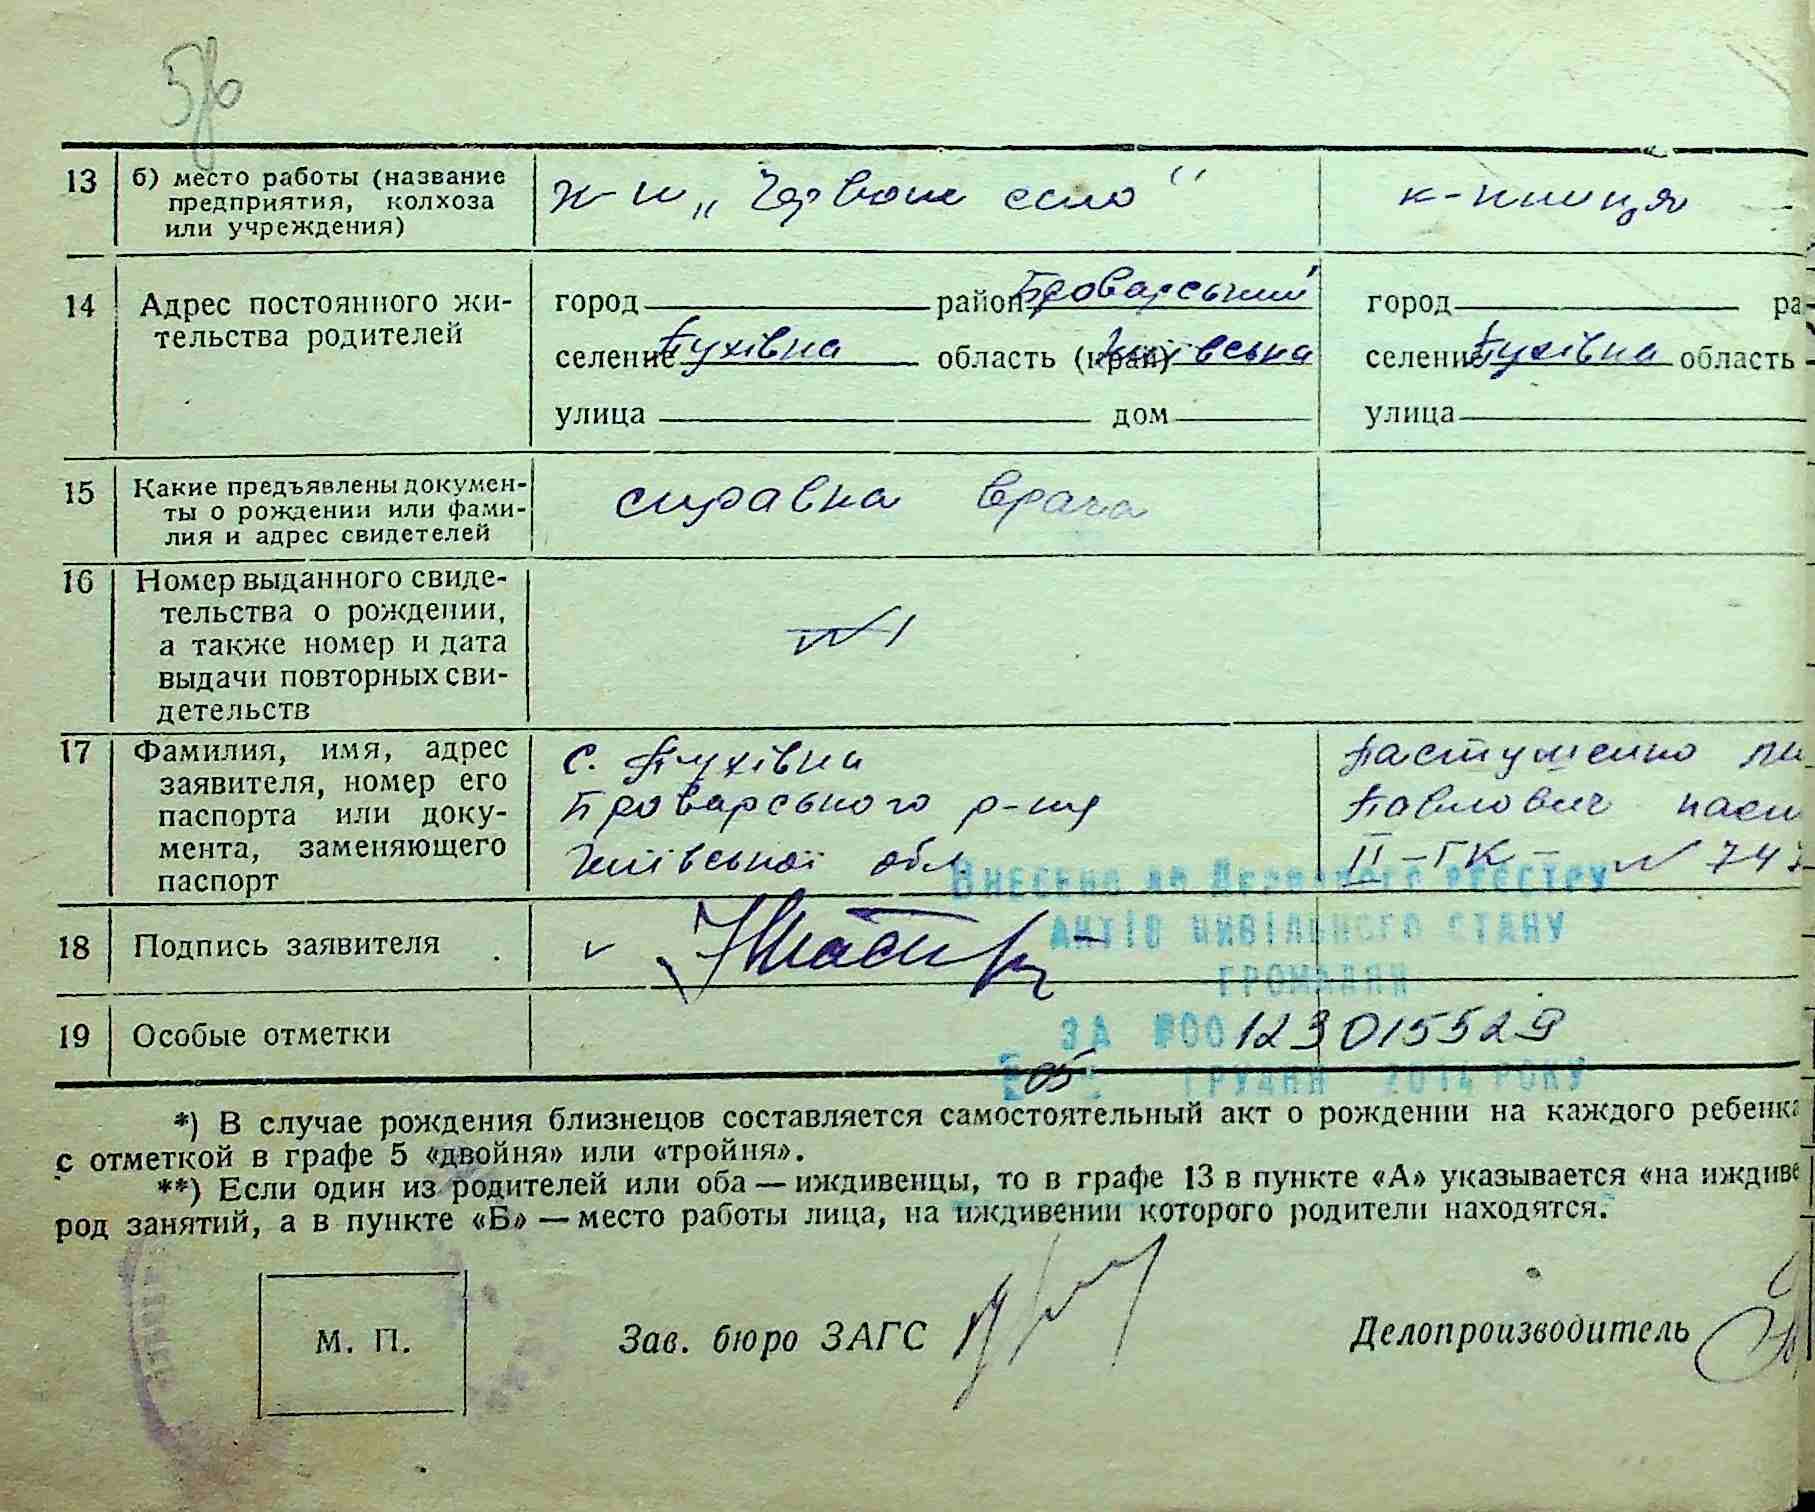 13 б) место работы (название
предприятия, колхоза
или учреждения)
к-п „Червоне село“
к-пниця
14 Адрес постоянного жи-
тельства родителей
город район Броварський
селение Пухівка область (край) Київська
улица дом
город ра
селение Пухівка область
улица
15 Какие предъявлены докумен-
ты о рождении или фами-
лия и адрес свидетелей
справка врача
16 Номер выданного свиде-
тельства о рождении,
а также номер и дата
выдачи повторных сви-
детельств
№ 1
17 Фамилия, имя, адрес
заявителя, номер его
паспорта или доку-
мента, заменяющего
паспорт
с. Пухівка
Броварського р-ну
Київської обл
Павлович пасп
II-ГК- № 747
18 Подпись заявителя
19 Особые отметки
Внесено до Державного реєстру
актів цивільного стану
громадян
за №00123015529
05 грудня 2014 року
*) В случае рождения близнецов составляется самостоятельный акт о рождении на каждого ребенка
с отметкой в графе 5 «двойня» или «тройня».
**) Если один из родителей или оба — иждивенцы, то в графе 13 в пункте «А» указывается «на иждиве
род занятий, а в пункте «Б» — место работы лица, на иждивении которого родители находятся.
М. П.
Зав. бюро ЗАГС
Делопроизводитель